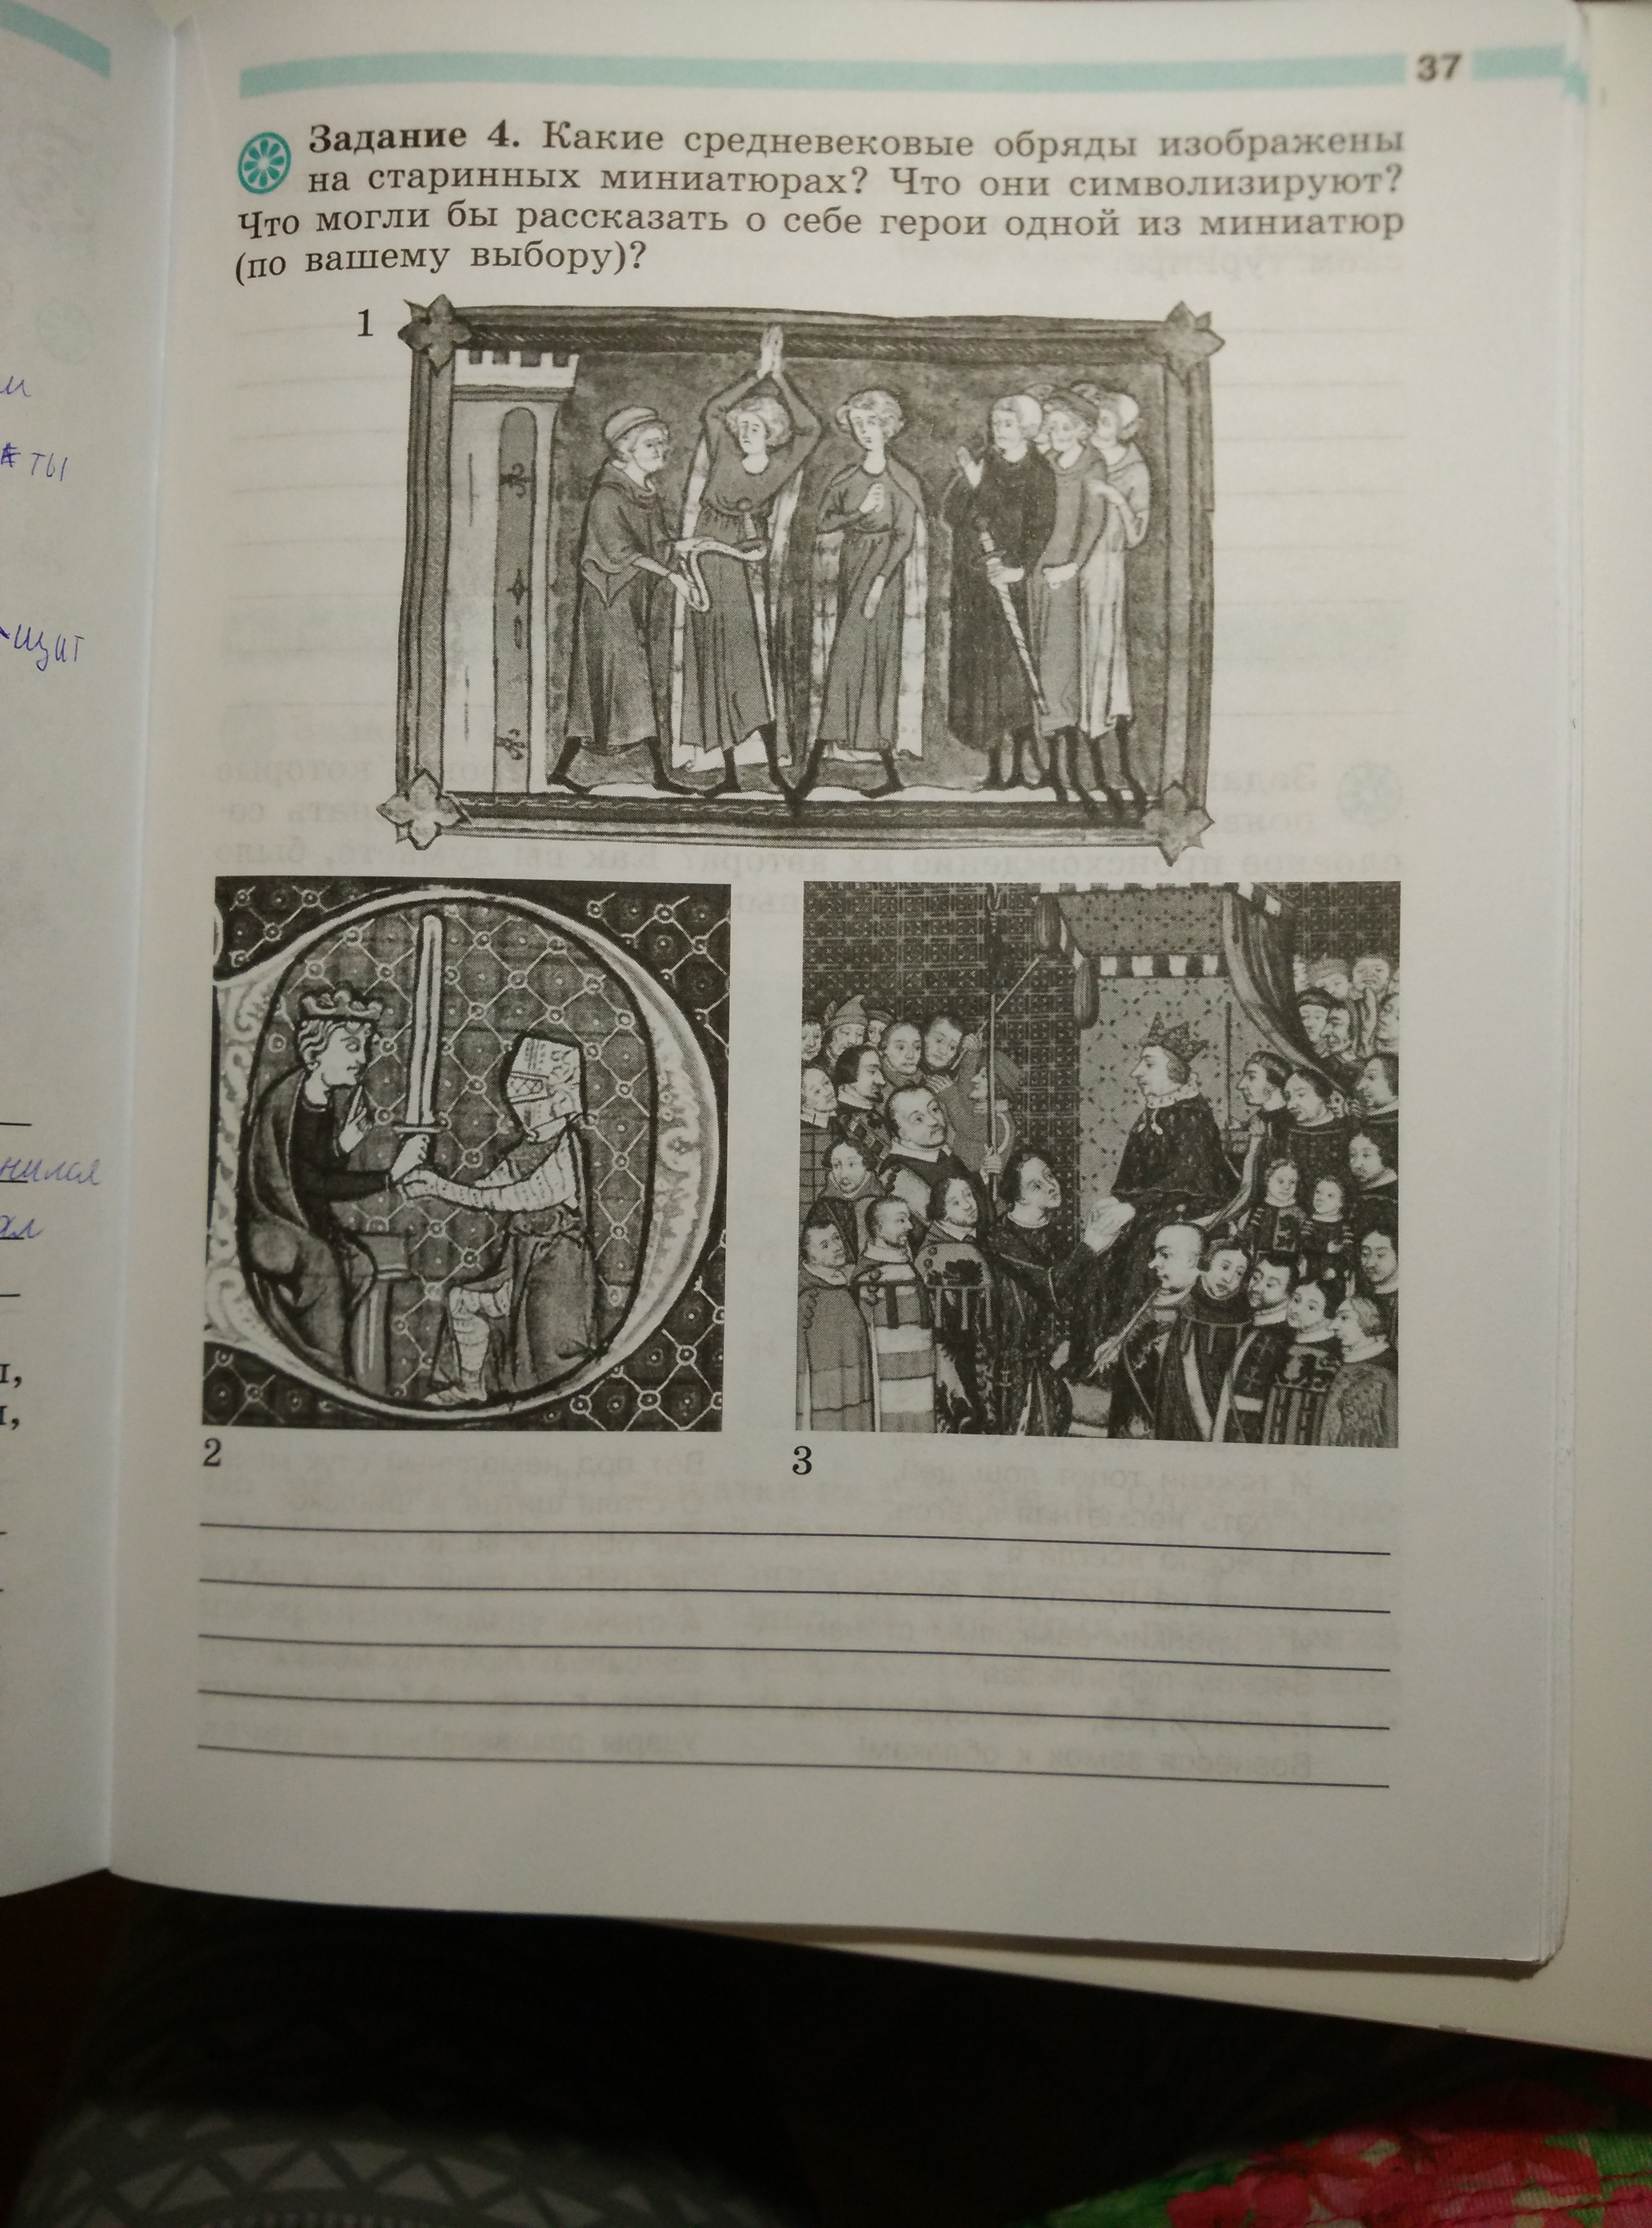 37
Задание 4. Какие средневековые обряды изображены
на старинных миниатюрах? Что они символизируют?
Что могли бы рассказать о себе герои одной из миниатюр
(по вашему выбору)?
1
2
3
ты
щит
нился